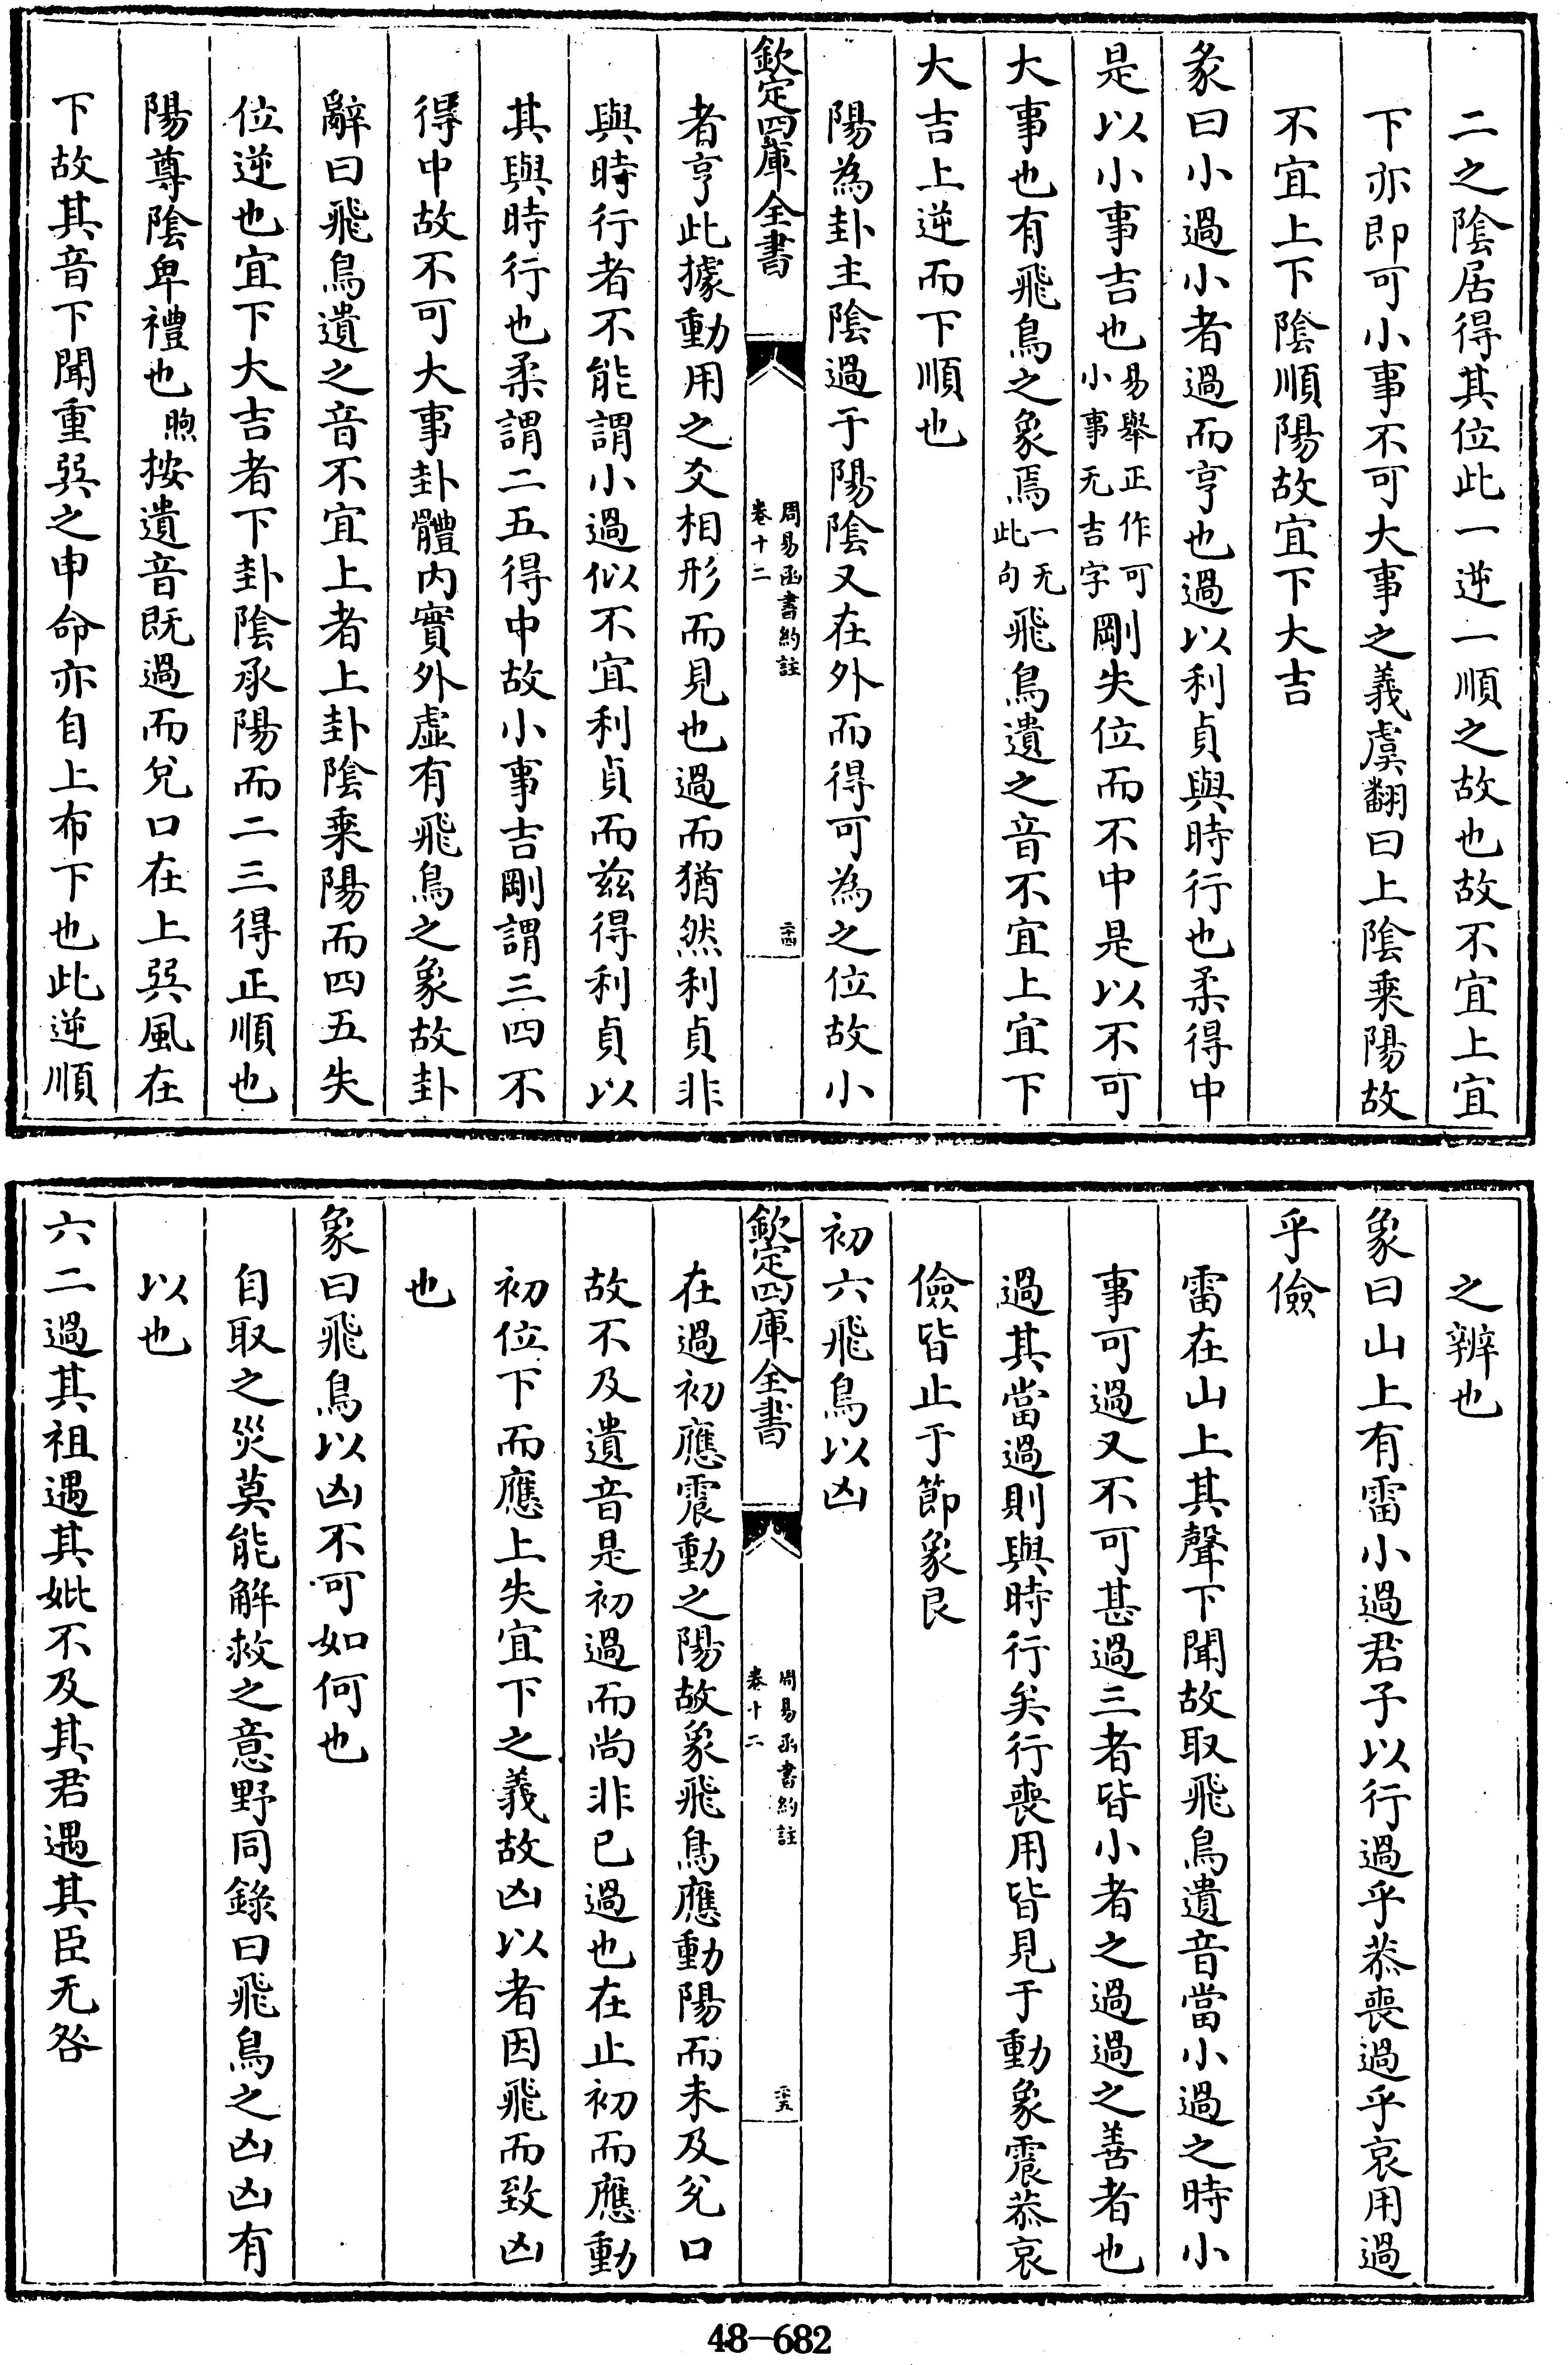 二之陰居得其位此一逆一順之故也故不宜上宜
下亦即可小事不可大事之義虞翻曰上陰乗陽故
不宜上下陰順陽故宜下大吉
彖曰小過小者過而亨也過以利貞與時行也柔得中
是以小事吉也易舉正作可小事无吉字剛失位而不中是以不可
大事也有飛鳥之象焉一无此句飛鳥遺之音不宜上宜下
大吉上逆而下順也
陽為卦主陰過于陽陰又在外而得可為之位故小
欽定四庫全書
周易函書約註
卷十二
二十四
者亨此據動用之爻相形而見也過而猶然利貞非
與時行者不能謂小過似不宜利貞而兹得利貞以
其與時行也柔謂二五得中故小事吉剛謂三四不
得中故不可大事卦體内實外虛有飛鳥之象故卦
辭曰飛鳥遺之音不宜上者上卦陰乗陽而四五失
位逆也宜下大吉者下卦陰承陽而二三得正順也
陽尊陰卑禮也煦按遺音既過而兌口在上巽風在
下故其音下聞重巽之申命亦自上布下也此逆順
之辨也
象曰山上有雷小過君子以行過乎恭喪過乎哀用過
乎儉
雷在山上其聲下聞故取飛鳥遺音當小過之時小
事可過又不可甚過三者皆小者之過過之善者也
過其當過則與時行矣行喪用皆見于動象震恭哀
儉皆止于節象艮
初六飛鳥以凶
欽定四庫全書
周易函書約註
卷十二
二十五
在過初應震動之陽故象飛鳥應動陽而未及兌口
故不及遺音是初過而尚非已過也在止初而應動
初位下而應上失宜下之義故凶以者因飛而致凶
也
象曰飛鳥以凶不可如何也
自取之災莫能解救之意野同錄曰飛鳥之凶凶有
以也
六二過其祖遇其妣不及其君遇其臣无咎
48-682